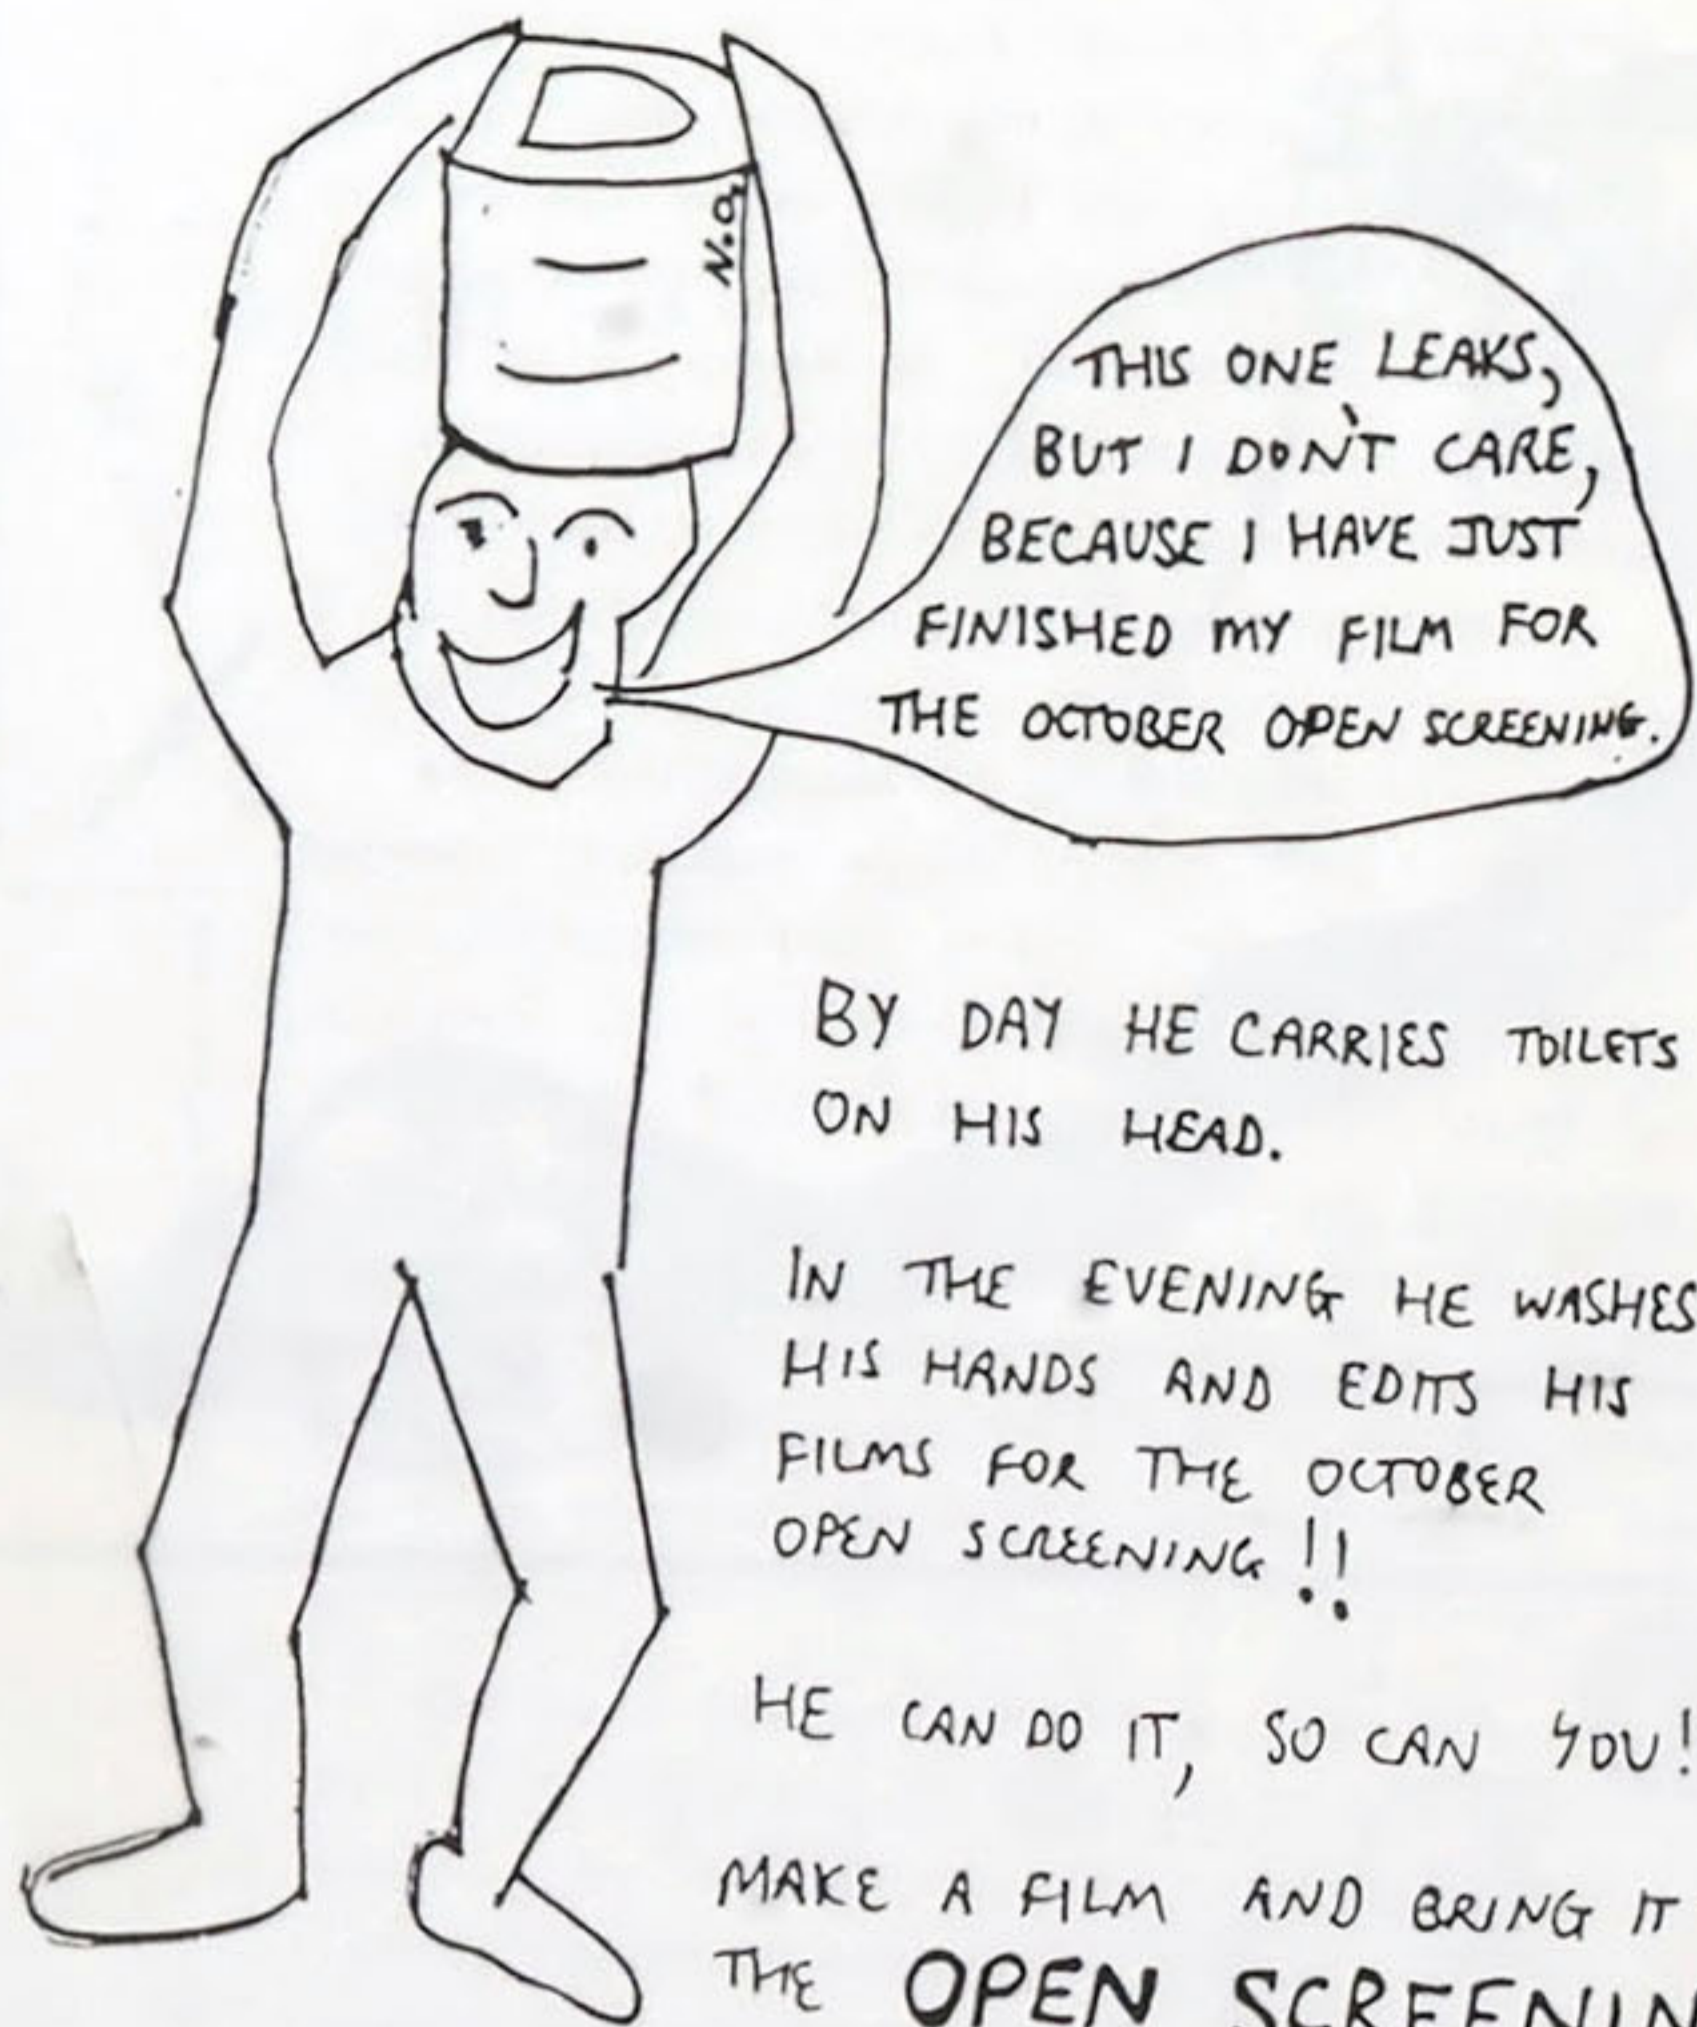 N.O.
THIS ONE LEAKS,
BUT I DON'T CARE,
BECAUSE I HAVE JUST
FINISHED MY FILM FOR
THE OCTOBER OPEN SCREENING.
BY DAY HE CARRIES TOILETS
ON HIS HEAD.
IN THE EVENING HE WASHES
HIS HANDS AND EDITS HIS
FILMS FOR THE OCTOBER
OPEN SCREENING!!
HE CAN DO IT, SO CAN YOU!
MAKE A FILM AND BRING IT
THE OPEN SCREENIN